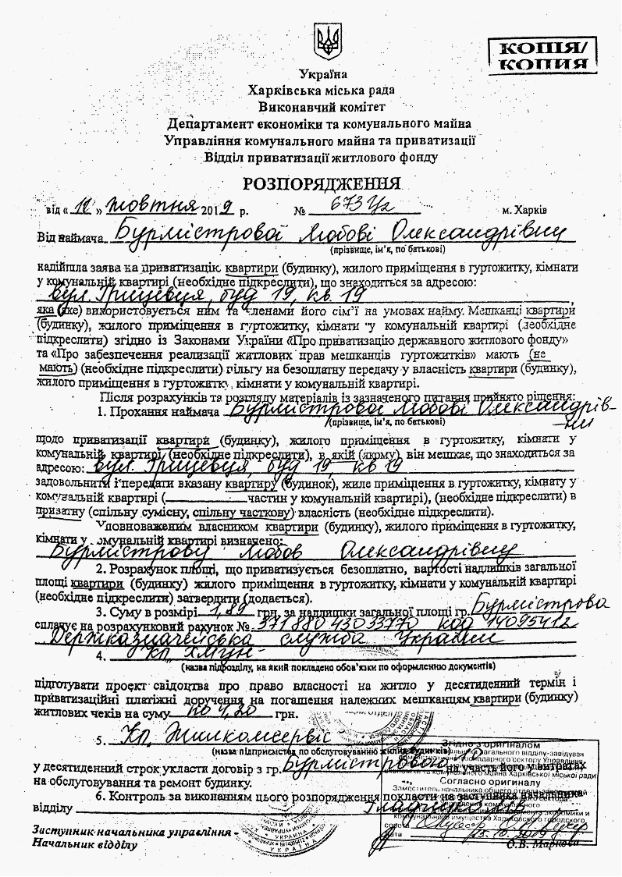 КОПІЯ/
КОПИЯ
Україна
Харківська міська рада
Виконавчий комітет
Департамент економіки та комунального майна
Управління комунального майна та приватизації
Відділ приватизації житлового фонду
РОЗПОРЯДЖЕННЯ
від « » жовтня 2019 р. № м. Харків
Від наймача Бурмістрової Любові Олександрівни
(прізвище, ім'я, по батькові)
надійшла заява на приватизацію квартири (будинку), жилого приміщення в гуртожитку, кімнати
у комунальній квартирі (необхідне підкреслити), що знаходиться за адресою:
вул. Грицевця, буд 19, кв. 19
яка (яке) використовується ним та членами його сім'ї на умовах найму. Мешканці квартири
(будинку), жилого приміщення в гуртожитку, кімнати у комунальній квартирі (необхідне
підкреслити) згідно із Законами України «Про приватизацію державного житлового фонду»
та «Про забезпечення реалізації житлових прав мешканців гуртожитків» мають (не
мають) (необхідне підкреслити) пільгу на безоплатну передачу у власність квартири (будинку),
жилого приміщення в гуртожитку, кімнати у комунальній квартирі.
Після розрахунків та розгляду матеріалів із зазначеного питання прийнято рішення:
1. Прохання наймача Бурмістрової Любові Олександрів-
ни
(прізвище, ім'я, по батькові)
щодо приватизації квартири (будинку), жилого приміщення в гуртожитку, кімнати у
комунальній квартирі (необхідне підкреслити), в якій (якому) він мешкає, що знаходиться за
адресою: вул. Грицевця, буд 19 кв 19
задовольнити і передати вказану квартиру (будинок), жиле приміщення в гуртожитку, кімнату у
комунальній квартирі ( частин у комунальній квартирі), (необхідне підкреслити) в
приватну (спільну сумісну, спільну часткову) власність (необхідне підкреслити).
Уповноваженим власником квартири (будинку), жилого приміщення в гуртожитку,
кімнати у комунальній квартирі визначено:
Бурмістрову Любов Олександрівну
2. Розрахунок площі, що приватизується безоплатно, вартості надлишків загальної
площі квартири (будинку) жилого приміщення в гуртожитку, кімнати у комунальній квартирі
(необхідне підкреслити) затвердити (додається).
3. Суму в розмірі 1,89 грн. за надлишки загальної площі гр. Бурмістрова
сплачує на розрахунковий рахунок № код 14095412
Держказначейська служба України
4.
(назва підрозділу, на який покладено обов'язки по оформленню документів)
підготувати проект свідоцтва про право власності на житло у десятиденний термін і
приватизаційні платіжні доручення на погашення належних мешканцям квартири (будинку)
житлових чеків на суму грн.
5. Кп. Жилкомсервіс
(назва підприємства по обслуговуванню жилих будинків)
у десятиденний строк укласти договір з гр. на участь його у витратах
на обслуговування та ремонт будинку.
6. Контроль за виконанням цього розпорядження покласти на заступника начальника
відділу
Згідно з оригіналом
Согласно оригиналу
Заступник начальника управління -
Начальник відділу
О.В. Маркова